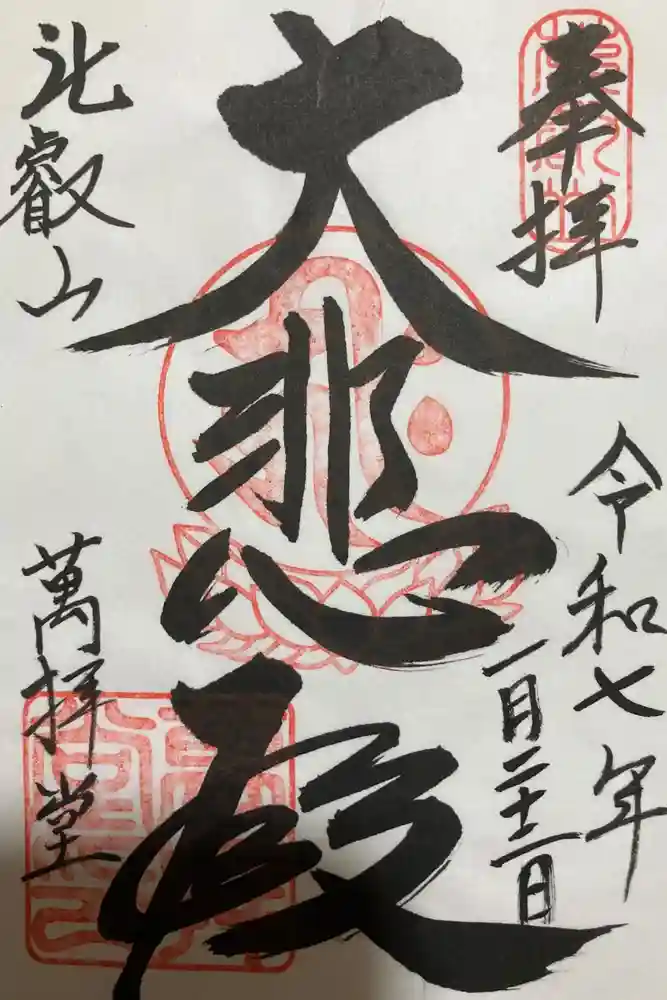 奉拝
令和七年
一月二十一日
大悲殿
比叡山
萬拝堂